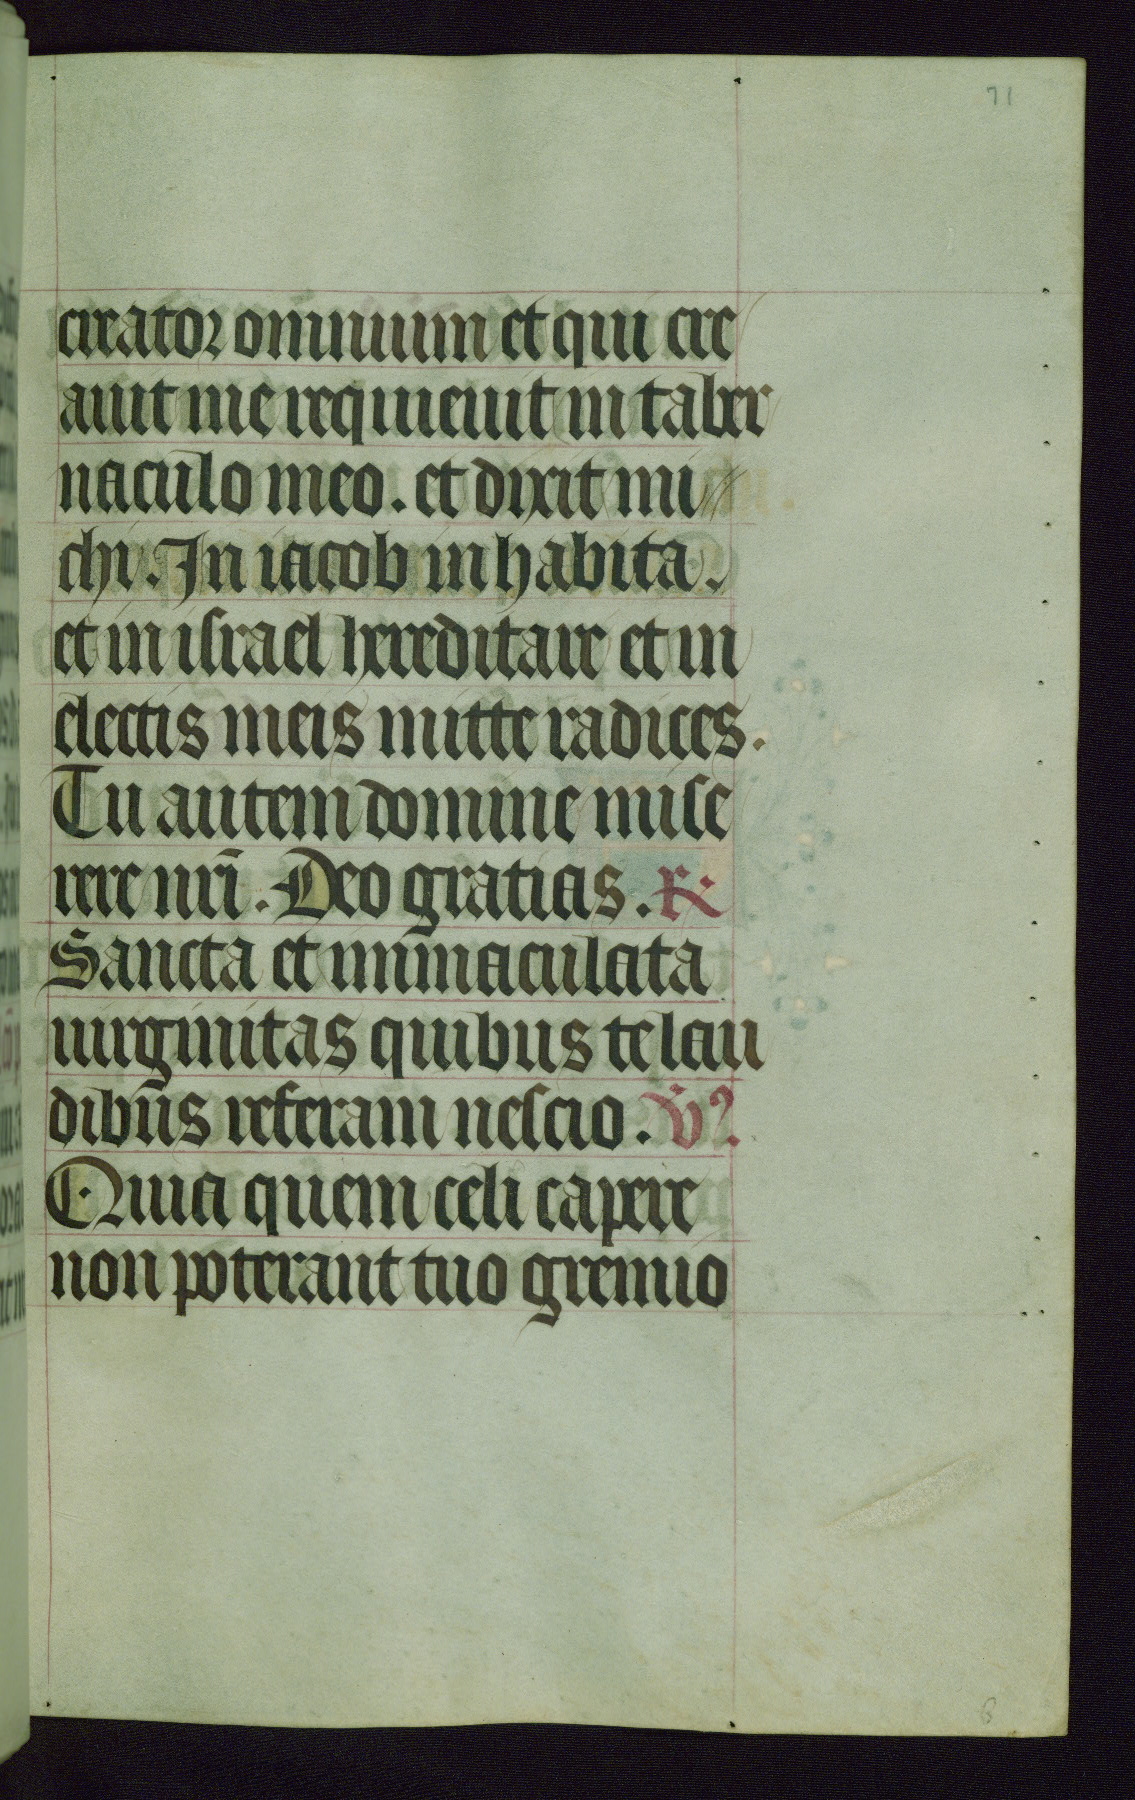 71
creator omnium et qui cre
auit me requieuit in taber
naculo meo. et dixit mi
chi. In iacob inhabita.
et in israel hereditare et in
electis meis mitte radices.
Tu autem domine mise
rere nr̄i. Deo gratias. R̸
Sancta et inmaculata
uirginitas quibus te lau
dibus referam nescio. V̸
Quia quem celi capere
non poterant tuo gremio